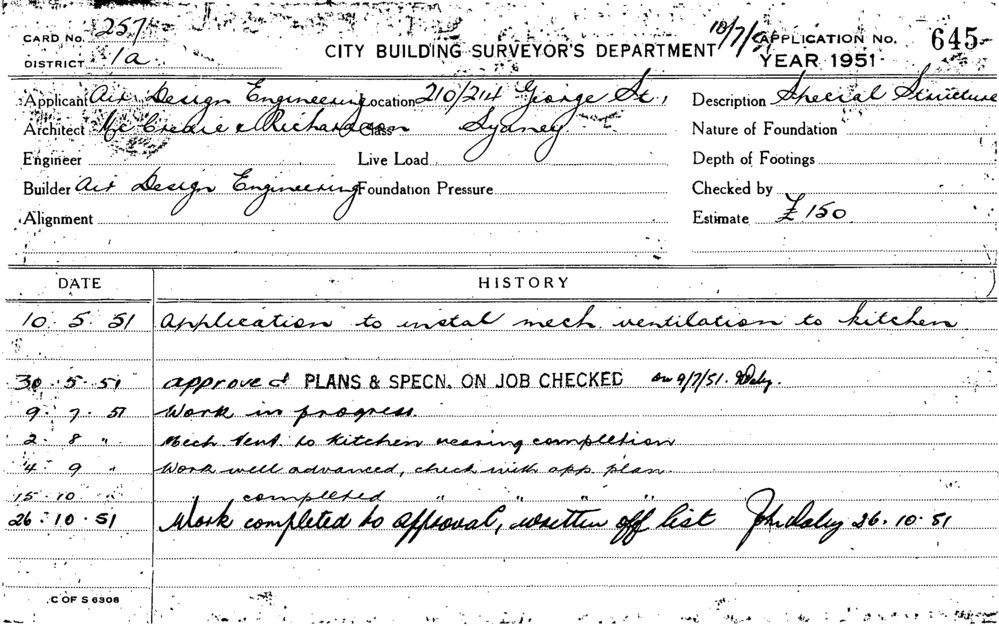 CARD No. 257 CITY BUILDING SURVEYOR'S DEPARTMENT 18/7/51 APPLICATION No. 645
DISTRICT 1a YEAR 1951
Applicant Air Design Engineering Location 210/214 George St., Description Special Structure
Architect McCredie & Richardson Class Sydney Nature of Foundation
Engineer Live Load Depth of Footings
Builder Air Design Engineering Foundation Pressure Checked by
Alignment Estimate £150
DATE HISTORY
10. 5. 51 Application to instal mech. ventilation to kitchen
30. 5. 51 approved PLANS & SPECN. ON JOB CHECKED on 9/7/51. JDaley.
9. 7. 51 Work in progress
2. 8 " Mech Vent. to kitchen nearing completion
4. 9 " Work well advanced, check with app. plan.
15. 10 completed " " " "
26. 10. 51 Work completed to approval, written off list John Daley 26. 10. 51
C OF S 6308